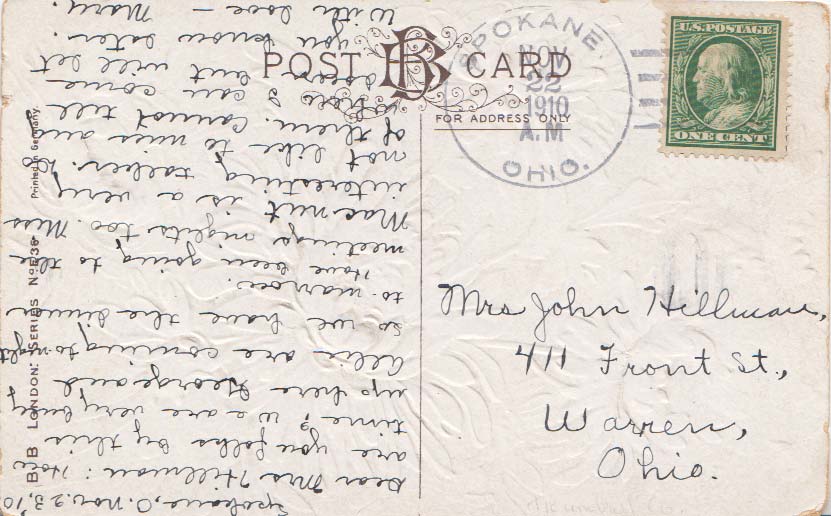 POST CARD
BB
FOR ADDRESS ONLY
SPOKANE,
NOV
22
1910
A.M
OHIO.
U.S. POSTAGE
ONE CENT
Mrs John Hillman,
411 Front St.,
Warren,
Ohio.
B B LONDON. SERIES No E36 Printed in Germany.
Spokane, O. Nov. 23, '10
Dear Mrs Hillman: How
are you folks by this
time; we are very busy
up here George and
Allie are coming to-night
so we have the dinner
to-morrow.
Have been going to the
meetings nights too. Miss
is a very
interesting talker. Do
not like to miss any
of them. Cannot tell
when I can come
down but will let
you know later.
With love — Mary.